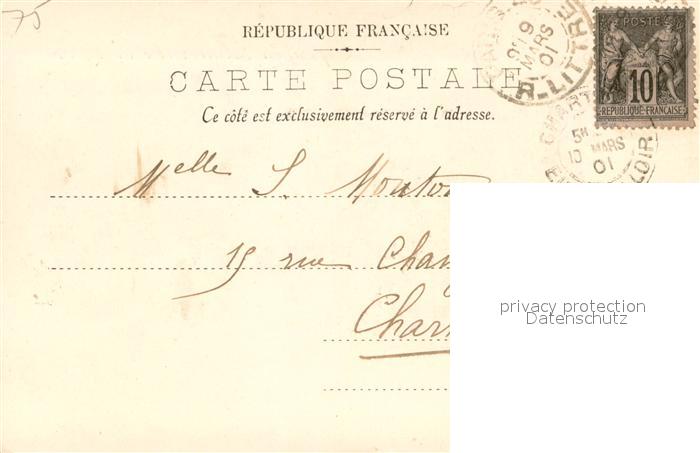 75
RÉPUBLIQUE FRANÇAISE
CARTE POSTALE
Ce côté est exclusivement réservé à l'adresse.
POSTE
10
RÉPUBLIQUE FRANÇAISE
9
MARS
01
R. LITTRÉ
CHART
5
10 MARS
01
LOIR
Melle S. Mouton
15 rue Chan
Char
privacy protection
Datenschutz